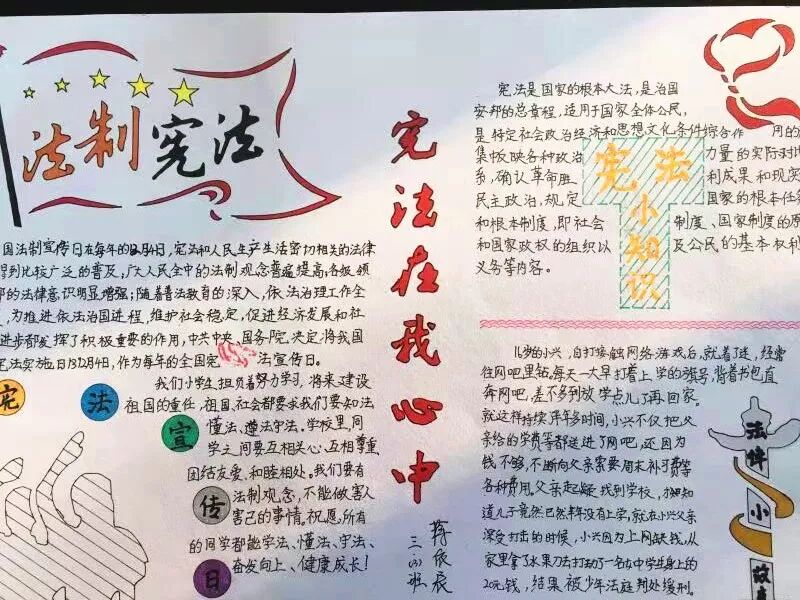 法制宪法
国法制宣传日在每年的12月4日,宪法和人民生产生活密切相关的法律
得到比较广泛的普及,广大人民全中的法制观念普遍提高,各级领
的法律意识明显增强;随着普法教育的深入,依法治理工作全
为推进依法治国进程,维护社会稳定,促进经济发展和社
进步都发挥了积极重要的作用,中共中央、国务院、决定,将我国
宪法实施日12月4日,作为每年的全国宪 法宣传日。
宪法宣传日
我们小学生,担负着努力学习,将来建设
祖国的重任,祖国、社会都要求我们要知法
懂法、遵法守法。学校里,同
学之间要互相关心、互相尊重
团结友爱、和睦相处。我们要有
法制观念,不能做害人
害己的事情。祝愿所有
的同学都能学法、懂法、守法、
奋发向上、健康成长!
宪法在我心中
三(3)班
宪法是国家的根本大法,是治国
安邦的总章程,适用于国家全体公民,
是特定社会政治经济和思想文化条件综合作用的
集中反映各种政治 力量的实际对比
系,确认革命胜 利成果和现实
民主政治,规定 国家的根本任
和根本制度,即社会 制度、国家制度的原
和国家政权的组织以 及公民的基本权利
义务等内容。
宪法小知识
几岁的小兴,自打接触网络游戏后,就着了迷,经常
往网吧里钻。每天一大早打着上学的旗号,背着书包直
奔网吧,差不多到放学点儿了再回家。
就这样持续半年多时间,小兴不仅把父
亲给的学费等都送进了网吧,还因为
钱不够,不断向父亲索要周末补习费等
各种费用。父亲起疑找到学校,才知
道儿子竟然已然半年没有上学,就在小兴父亲
深受打击的时候,小兴因为上网缺钱,从
家里拿了水果刀去打劫了一名女中学生身上的
20元钱,结果被少年法庭判处缓刑。
法律小故